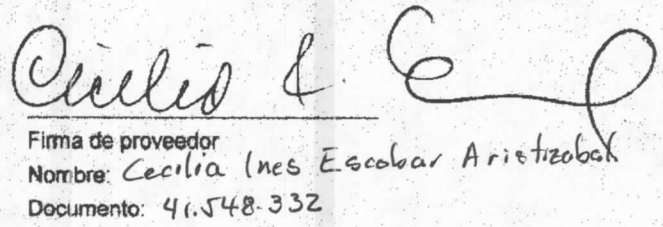 Cecilia I. Esc
Firma de proveedor
Nombre: Cecilia Ines Escobar Aristizabal
Documento: 41.548.332